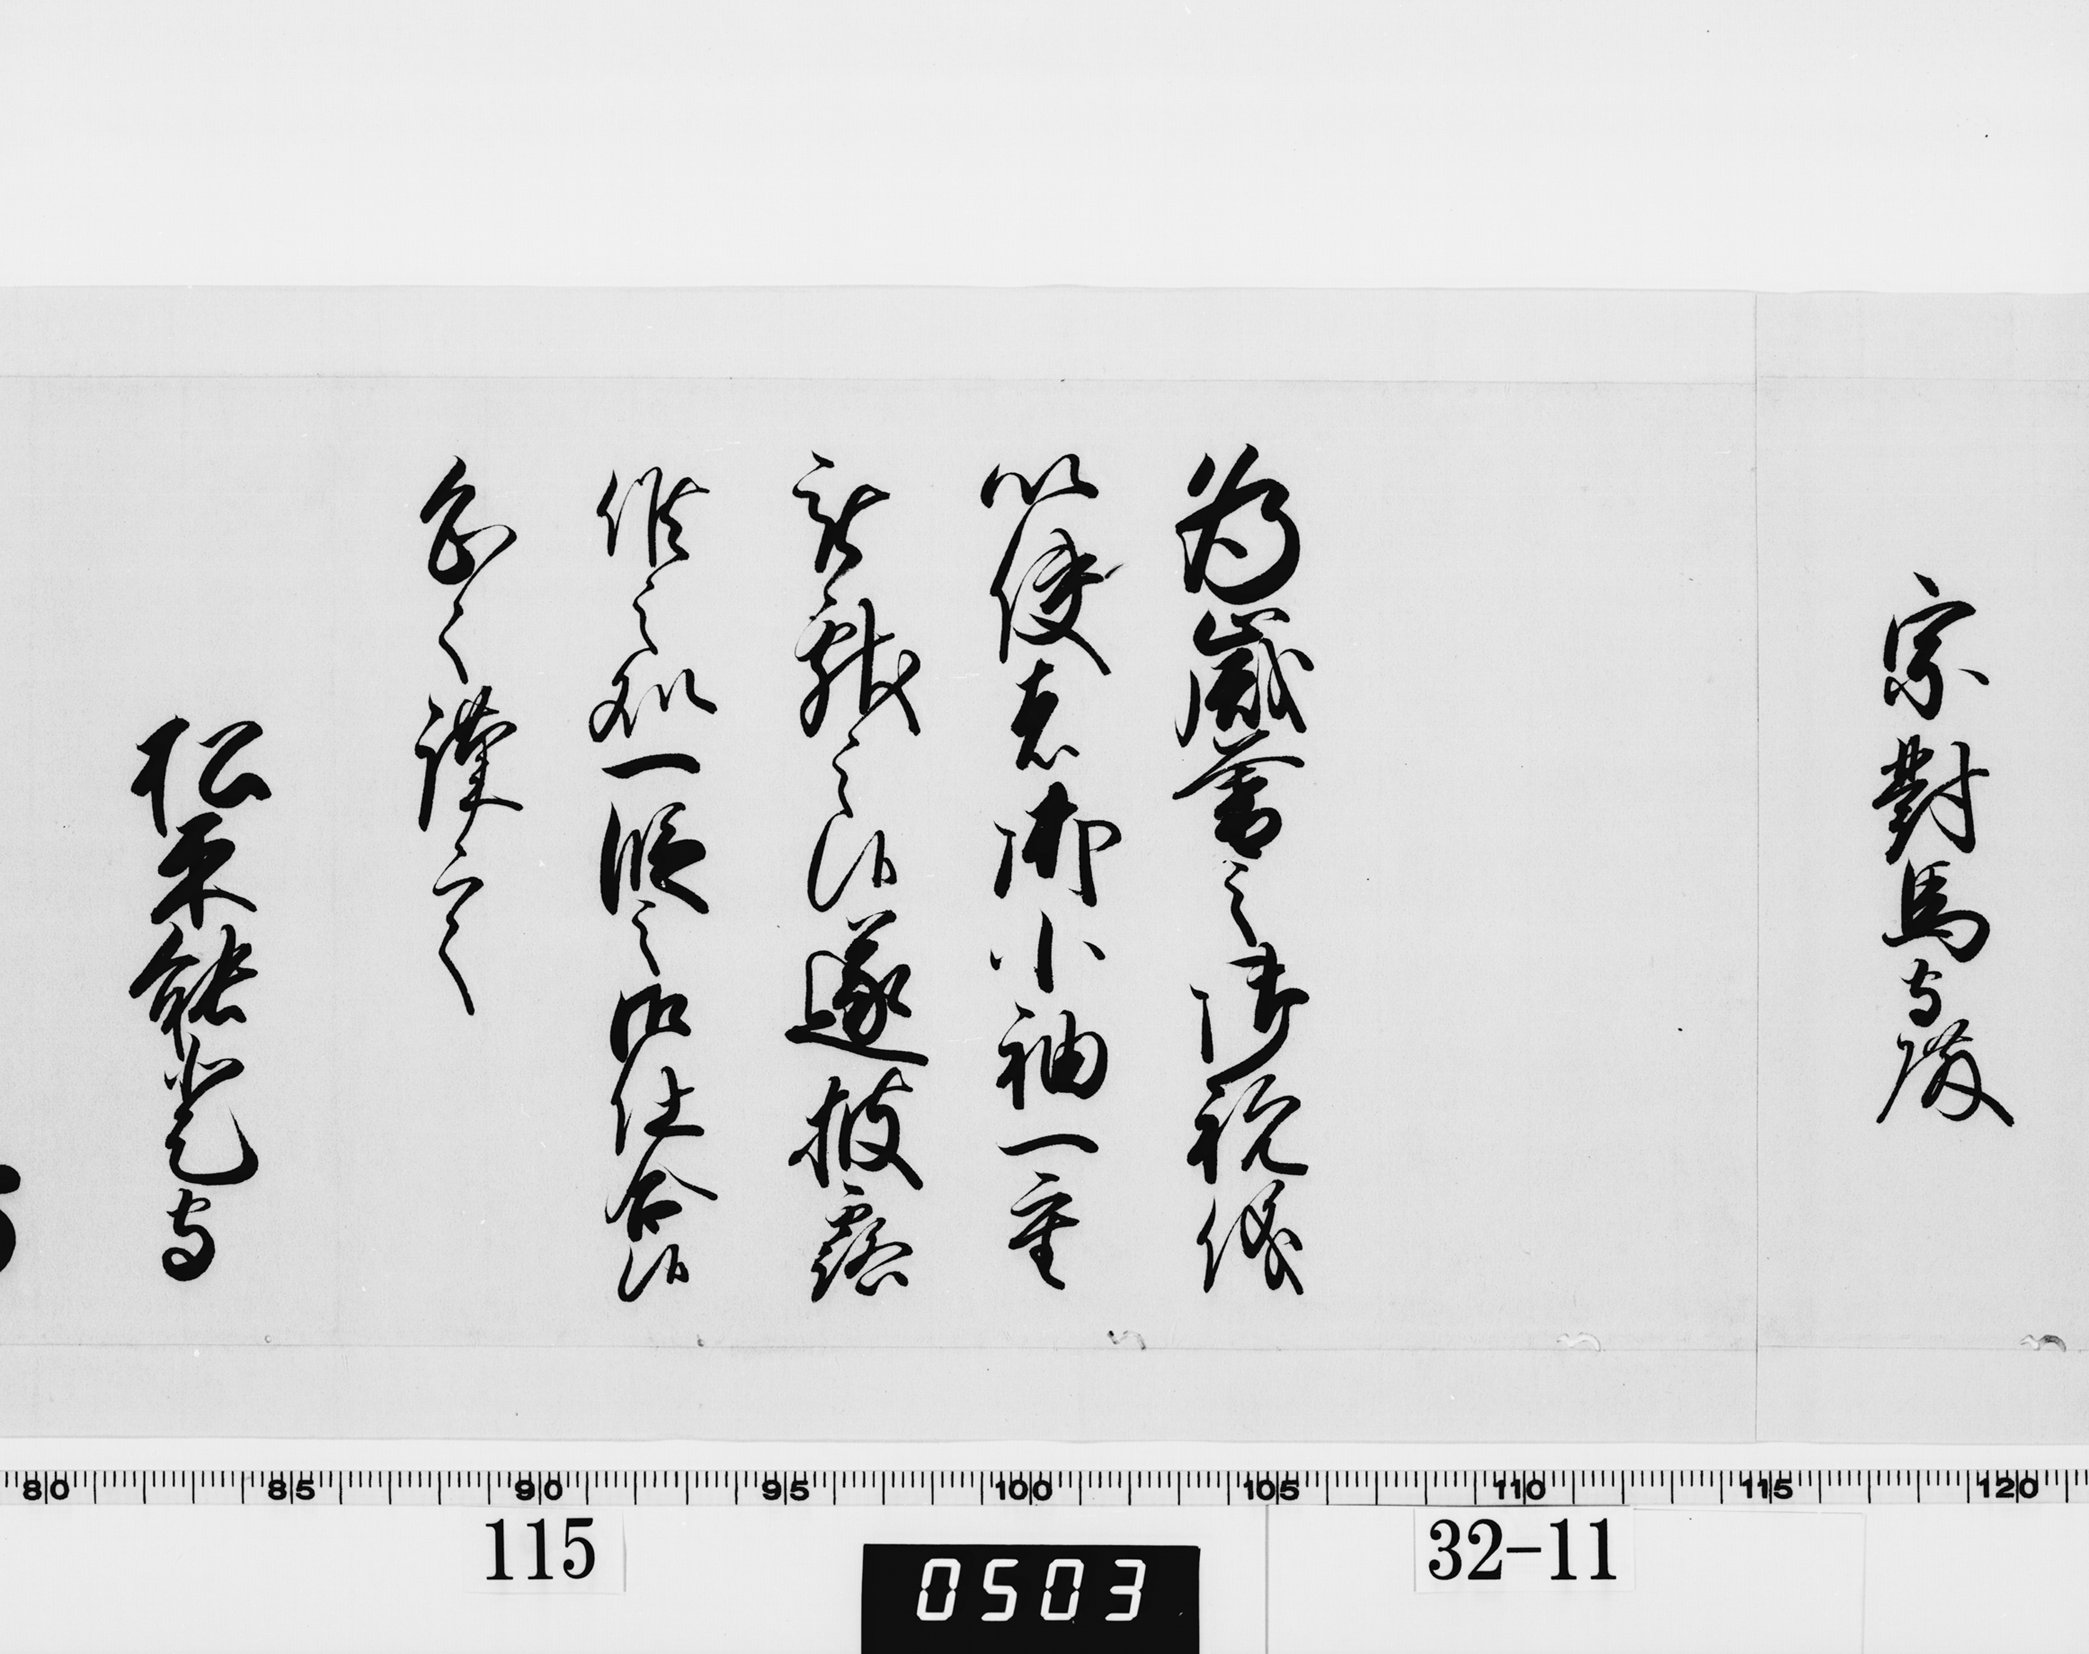 宗對馬守殿
為歳暮之御祝儀
以使者御小袖一重
被献之候遂披露
候之処一段之御仕合候
恐々謹言
松平能登守
80 85 90 95 100 105 110 115 120
115
0503
32-11